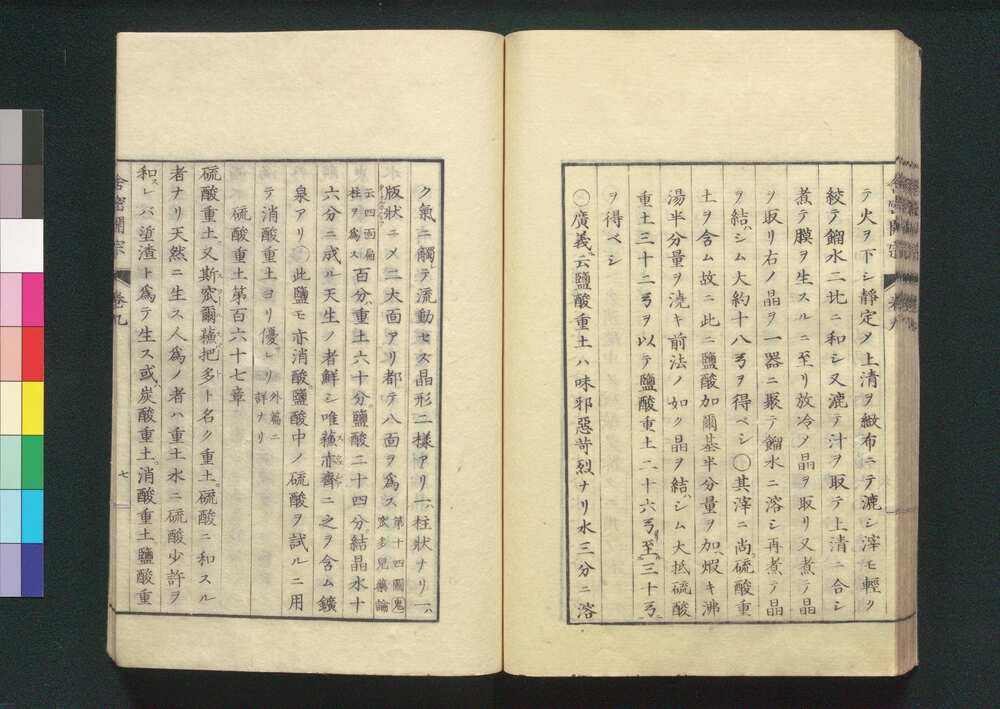 テ火ヲ下シ靜定メ上清ヲ緻布ニテ漉シ滓モ輕ク
絞テ餾水二比ニ和シ又漉テ汁ヲ取テ上清ニ合シ
煮テ膜ヲ生スルニ至リ放冷ノ晶ヲ取リ又煮テ晶
ヲ取リ右ノ晶ヲ一器ニ聚テ餾水ニ溶シ再煮テ晶
ヲ結シム大約十八弓ヲ得ベシ○其滓ニ尚硫酸重
土ヲ含ム故ニ此ニ鹽酸加爾基半分量ヲ加煆キ沸
湯半分量ヲ澆キ前法ノ如ク晶ヲ結シム大抵硫酸
重土三十二弓ヲ以テ鹽酸重土二十六弓至三十弓
ヲ得ベシ
○廣義云鹽酸重土ハ味邪惡苛烈ナリ水三分ニ溶
舍密開宗 卷九
ク氣ニ觸テ流動セス晶形二樣アリ一ハ柱狀ナリ一ハ
版狀ニメ二大面アリ都テ八面ヲ爲ス 第十四圖鬼 窊多兒藥論
云四面扁柱ヲ爲ス 百分重土六十分鹽酸二十四分結晶水十
六分ニ成ル天生ノ者鮮シ唯蘓亦齊ニ之ヲ含ム鑛
泉アリ○此鹽モ亦消酸鹽酸中ノ硫酸ヲ試ルニ用
テ消酸重土ヨリ優レリ 外篇ニ詳ナリ
硫酸重土第百六十七章
硫酸重土又斯窊爾蘓把多ト名ク重土硫酸ニ和スル
者ナリ天然ニ生ス人爲ノ者ハ重土水ニ硫酸少許ヲ
和スレバ埿渣ト爲テ生ス或炭酸重土消酸重土鹽酸重
舍密開宗 卷九
七